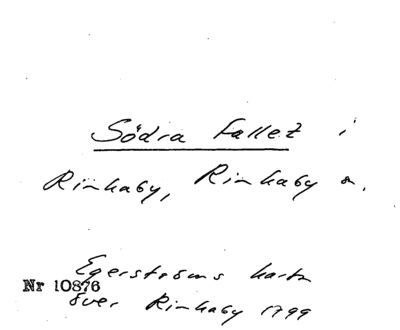 Södra fallet i
Rinkaby, Rinkaby s.
Egerströms karta
Nr 10876
över Rinkaby 1799